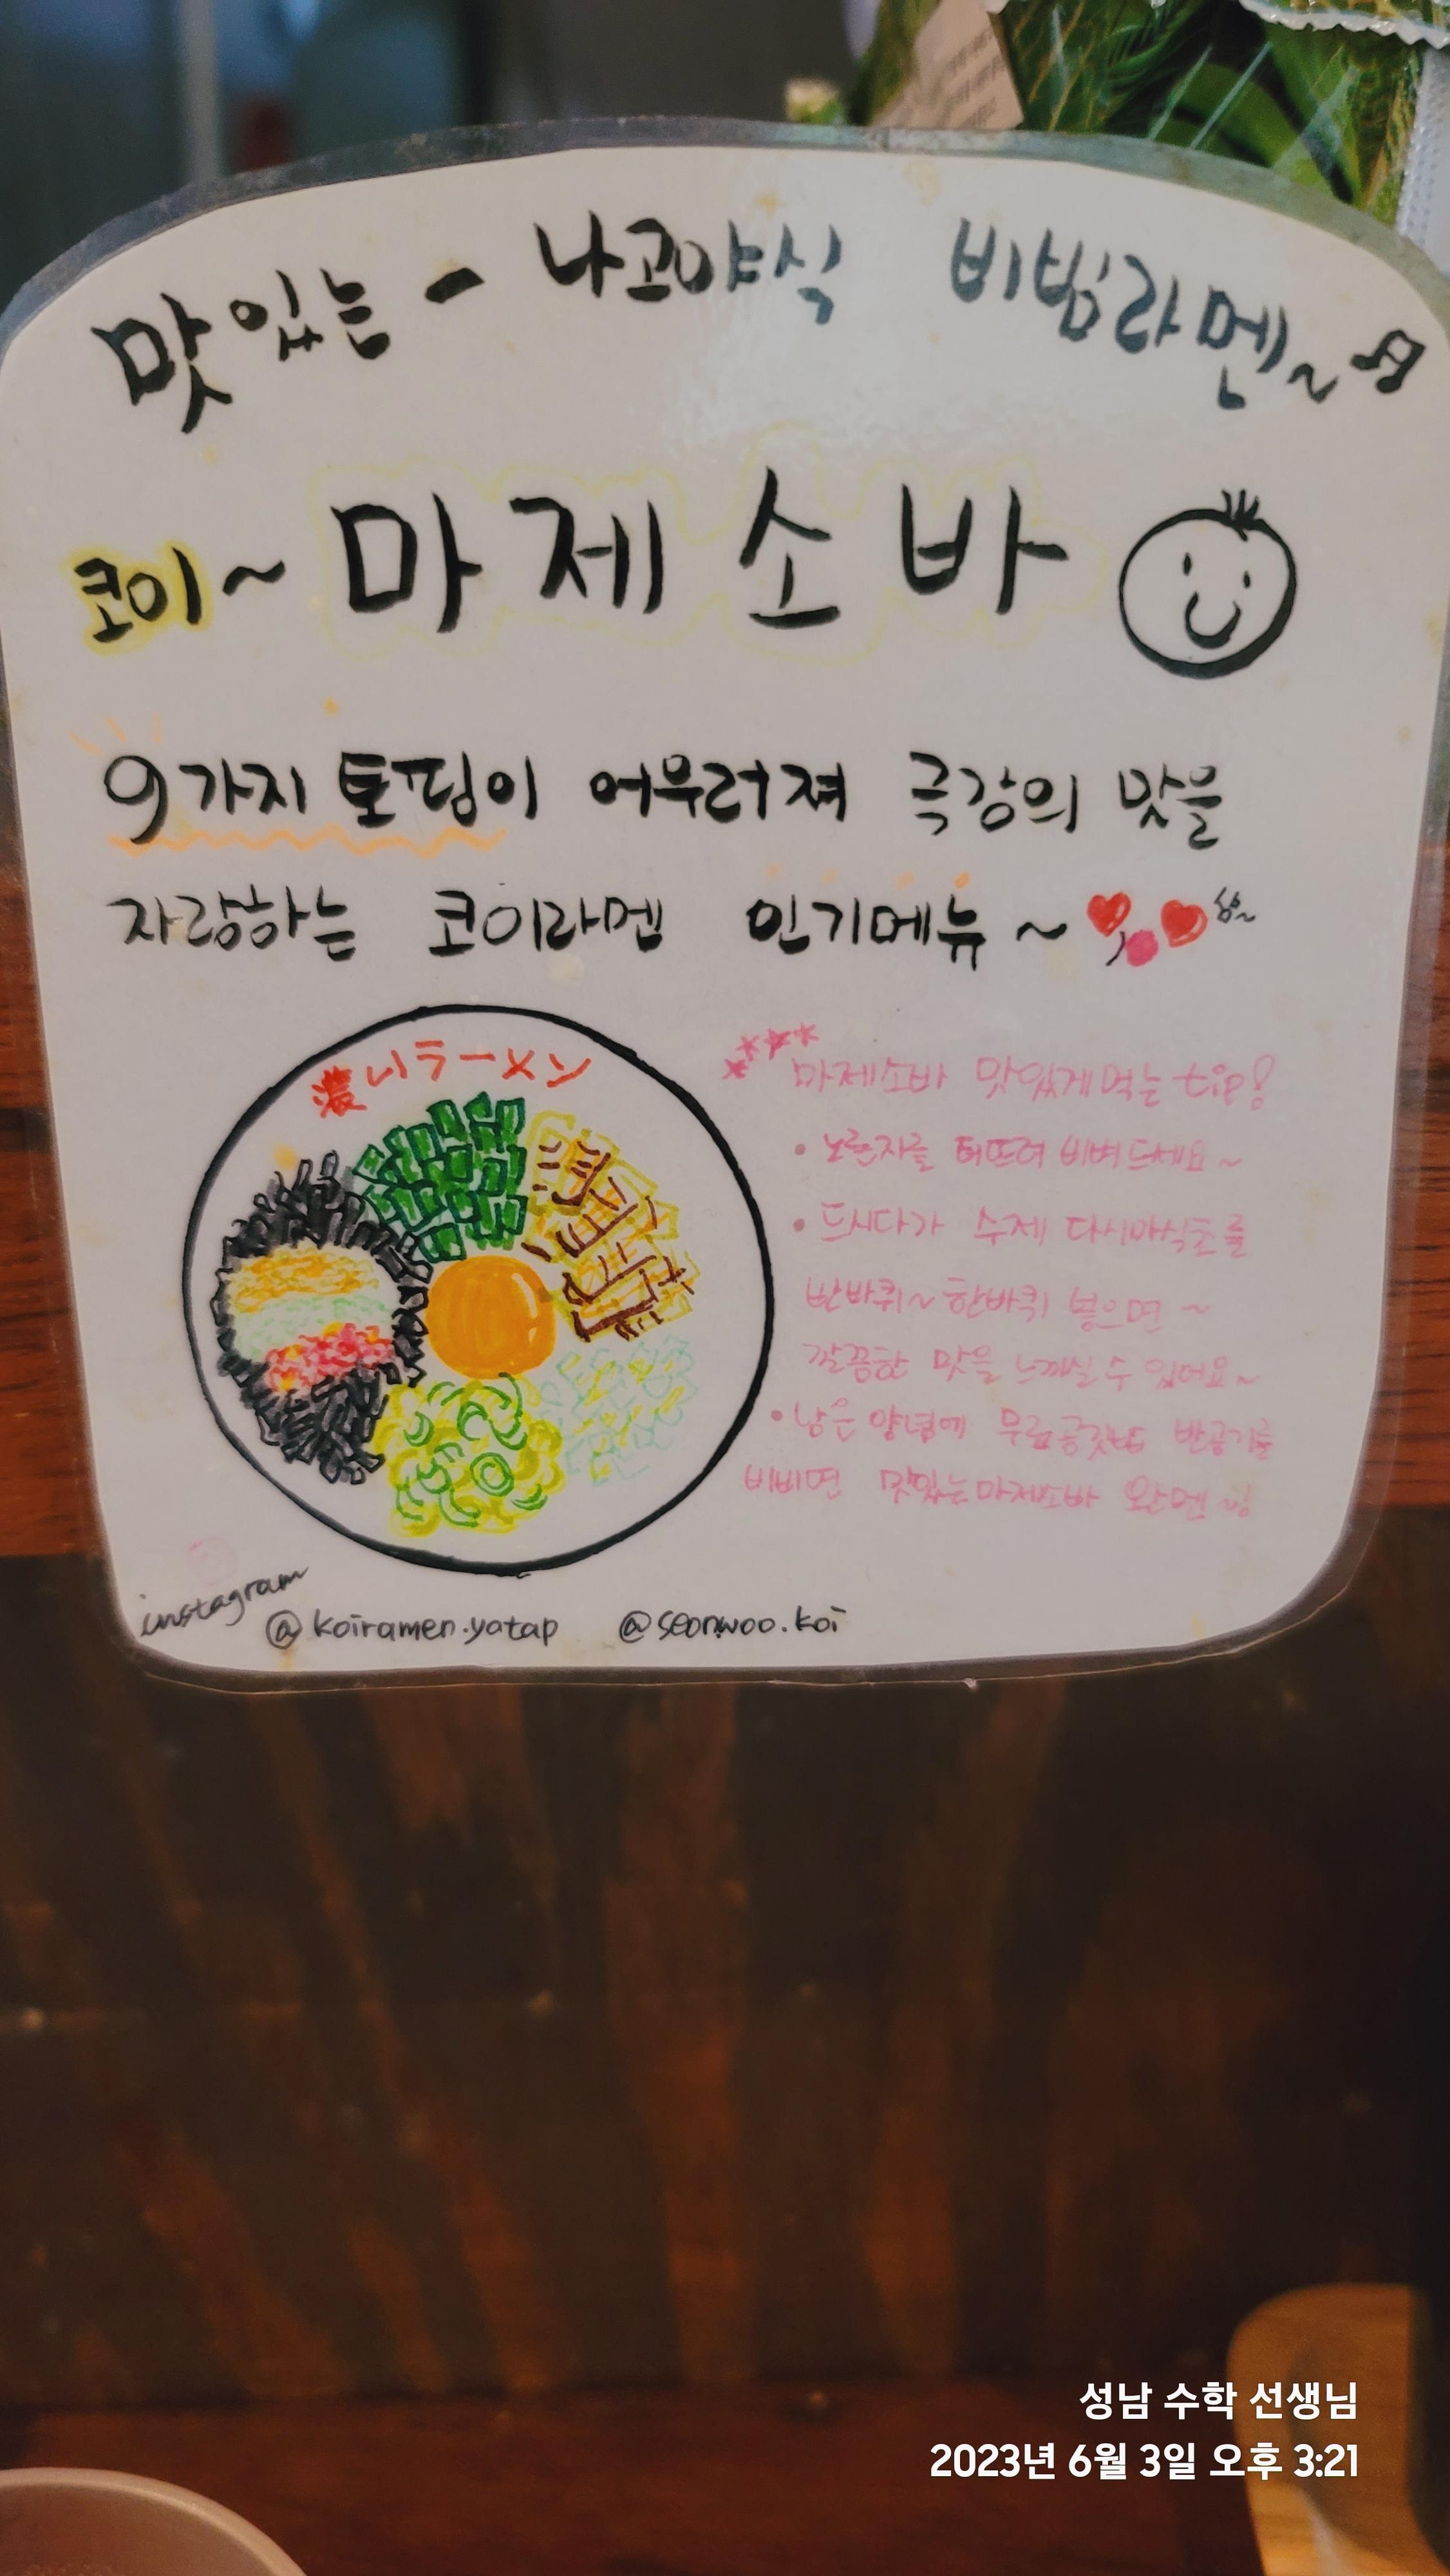 맛있는 - 나고야식 비빔라멘~♫
코이~ 마제소바
9가지 토핑이 어우러져 극강의 맛을
자랑하는 코이라멘 인기메뉴~
濃いラーメン
마제소바 맛있게 먹는 tip!
• 노른자를 터뜨려 비벼드세요~
• 드시다가 수제 다시마식초를
반바퀴~한바퀴 붙으면~
깔끔한 맛을 느끼실 수 있어요~
• 남은 양념에 무료 밥공기를
비비면 맛있는 마제소바 완멘
instagram
@koiramen.yatap @seonwoo.koi
성남 수학 선생님
2023년 6월 3일 오후 3:21